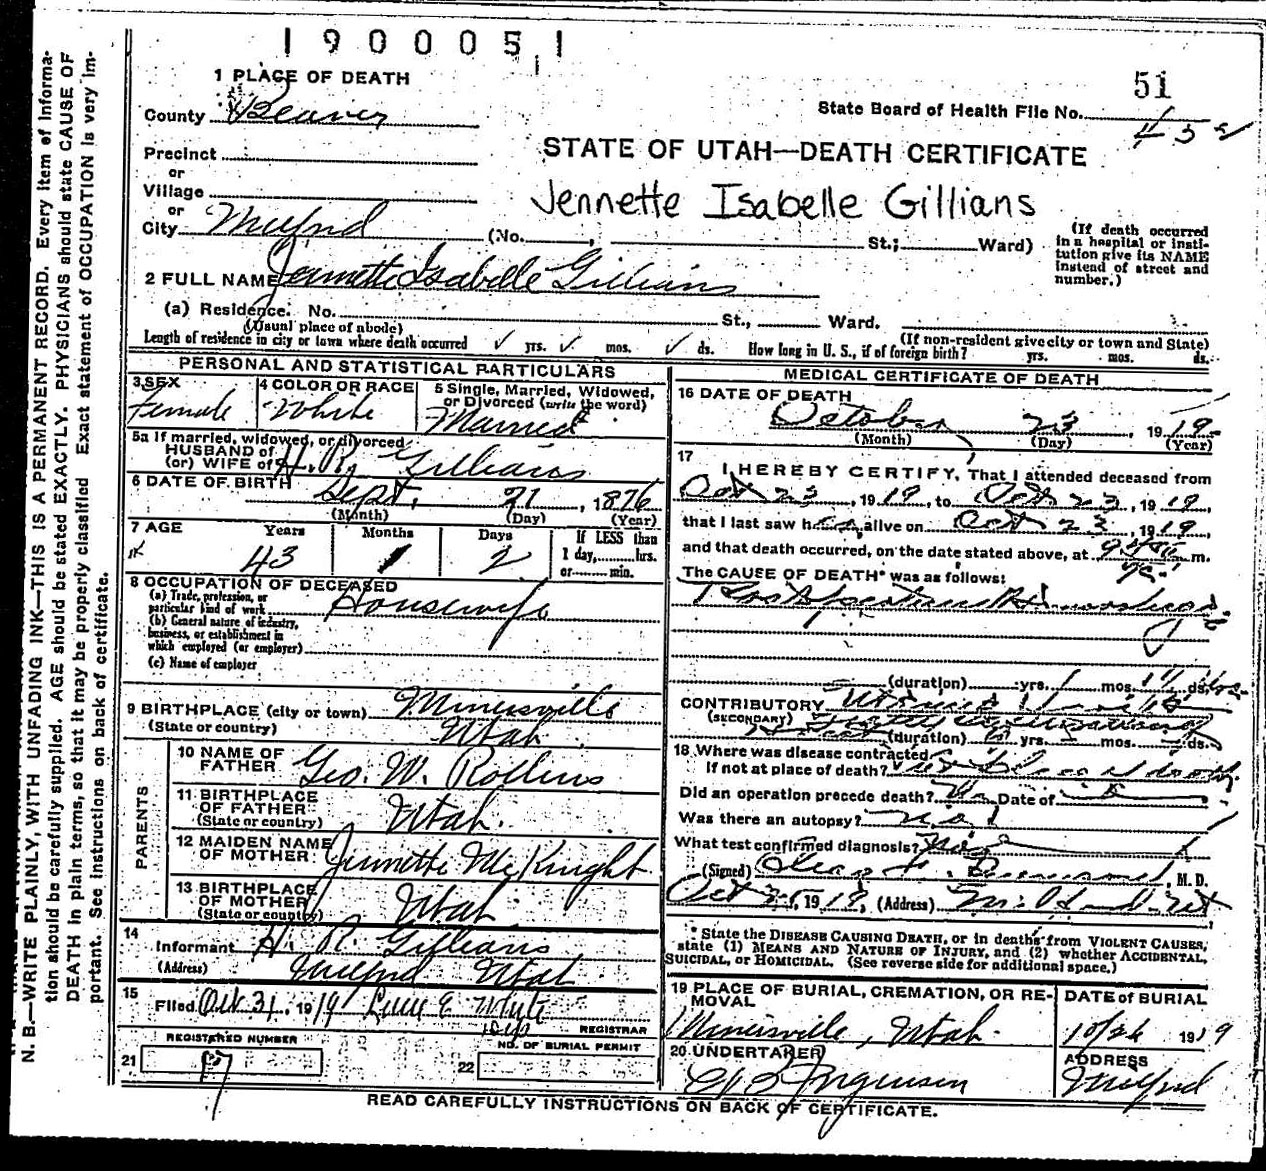 1900051
51
1 PLACE OF DEATH
State Board of Health File No.
43
County Beaver
STATE OF UTAH—DEATH CERTIFICATE
Precinct
or
Village
Jennette Isabelle Gillians
or
City Milford (No. , St.; Ward)
(If death occurred in a hospital or insti-
tution give its NAME
instead of street and
number.)
2 FULL NAME Jennette Isabelle Gillians
(a) Residence. No. St., Ward.
(Usual place of abode)
(If non-resident give city or town and State)
Length of residence in city or town where death occurred ✓ yrs. ✓ mos. ✓ ds. How long in U. S., if of foreign birth? yrs. mos. ds.
PERSONAL AND STATISTICAL PARTICULARS
3 SEX
Female
4 COLOR OR RACE
White
5 Single, Married, Widowed,
or Divorced (write the word)
Married
5a If married, widowed, or divorced
HUSBAND of
(or) WIFE of H. R. Gillians
6 DATE OF BIRTH Sept. 21, 1876
(Month) (Day) (Year)
7 AGE Years Months Days If LESS than
43 1 2 1 day, hrs.
or min.
8 OCCUPATION OF DECEASED
(a) Trade, profession, or
particular kind of work Housewife
(b) General nature of industry,
business, or establishment in
which employed (or employer)
(c) Name of employer
9 BIRTHPLACE (city or town) Minersville
(State or country) Utah
PARENTS
10 NAME OF
FATHER Geo. W. Rollins
11 BIRTHPLACE
OF FATHER
(State or country) Utah.
12 MAIDEN NAME
OF MOTHER Jennette McKnight
13 BIRTHPLACE
OF MOTHER
(State or country) Utah
14
Informant H. R. Gillians
(Address) Milford Utah
15
Filed Oct 31, 1919 E White
REGISTRAR
REGISTERED NUMBER
21 17
NO. OF BURIAL PERMIT
22
MEDICAL CERTIFICATE OF DEATH
16 DATE OF DEATH
October 23, 1919
(Month) (Day) (Year)
17
I HEREBY CERTIFY, That I attended deceased from
Oct 23, 1919, to Oct 23, 1919,
that I last saw her alive on Oct 23, 1919,
and that death occurred, on the date stated above, at m.
The CAUSE OF DEATH* was as follows:
Post partum Hemorrhage
(duration) yrs. mos. ds.
CONTRIBUTORY
(SECONDARY)
(duration) yrs. mos. ds.
18 Where was disease contracted
If not at place of death? place of death
Did an operation precede death? No Date of
Was there an autopsy? no
What test confirmed diagnosis?
(Signed) , M. D.
Oct 25, 1919, (Address) Milford Ut
* State the DISEASE CAUSING DEATH, or in deaths from VIOLENT CAUSES,
state (1) MEANS AND NATURE OF INJURY, and (2) whether ACCIDENTAL,
SUICIDAL, or HOMICIDAL. (See reverse side for additional space.)
19 PLACE OF BURIAL, CREMATION, OR RE-
MOVAL
Minersville, Utah.
DATE of BURIAL
10/26 1919
20 UNDERTAKER
Jorgensen
ADDRESS
Milford
READ CAREFULLY INSTRUCTIONS ON BACK OF CERTIFICATE.
N. B.—WRITE PLAINLY, WITH UNFADING INK—THIS IS A PERMANENT RECORD. Every item of informa-
tion should be carefully supplied. AGE should be stated EXACTLY. PHYSICIANS should state CAUSE OF
DEATH in plain terms, so that it may be properly classified. Exact statement of OCCUPATION is very im-
portant. See instructions on back of certificate.